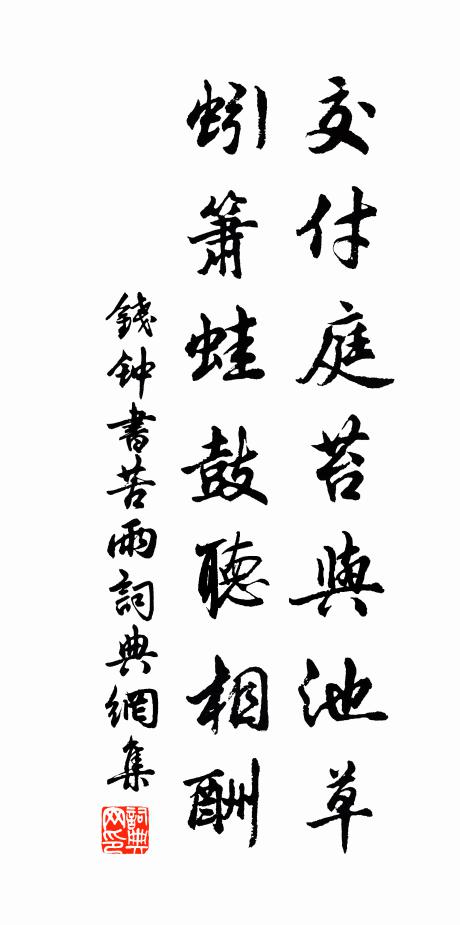 交付庭苔與池草
蚓簫蛙鼓聽相酬
錢钟書苦雨詞典網集
詞典网印